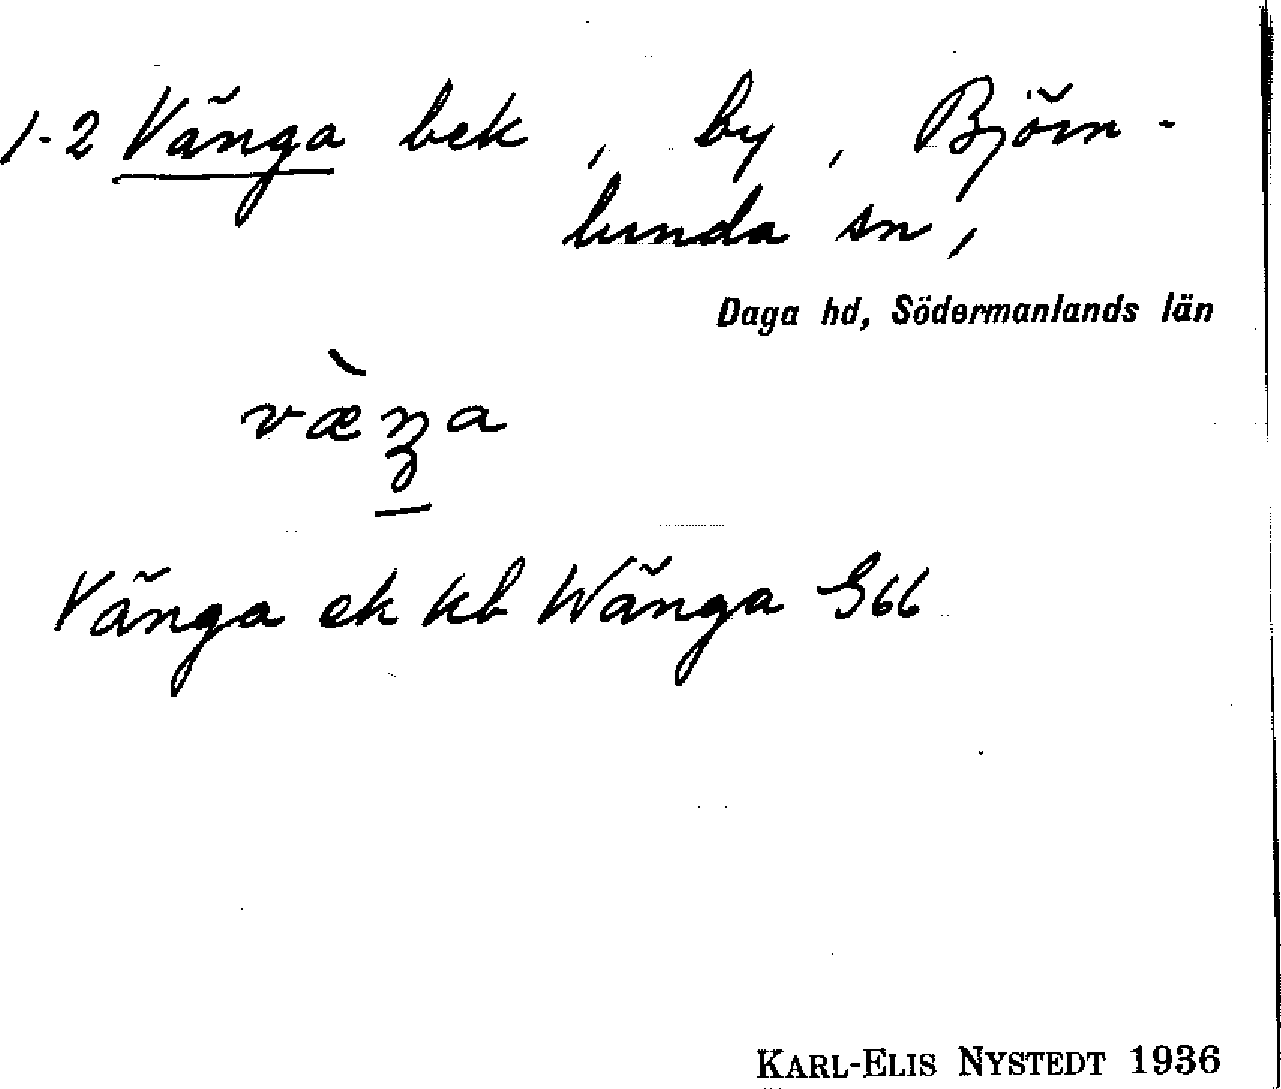 1-2 Vänga bek , by , Björn-
lunda sn ,
Daga hd, Södermanlands län
væ̀ŋa
Vänga ek kb Wänga G66
KARL-ELIS NYSTEDT 1936